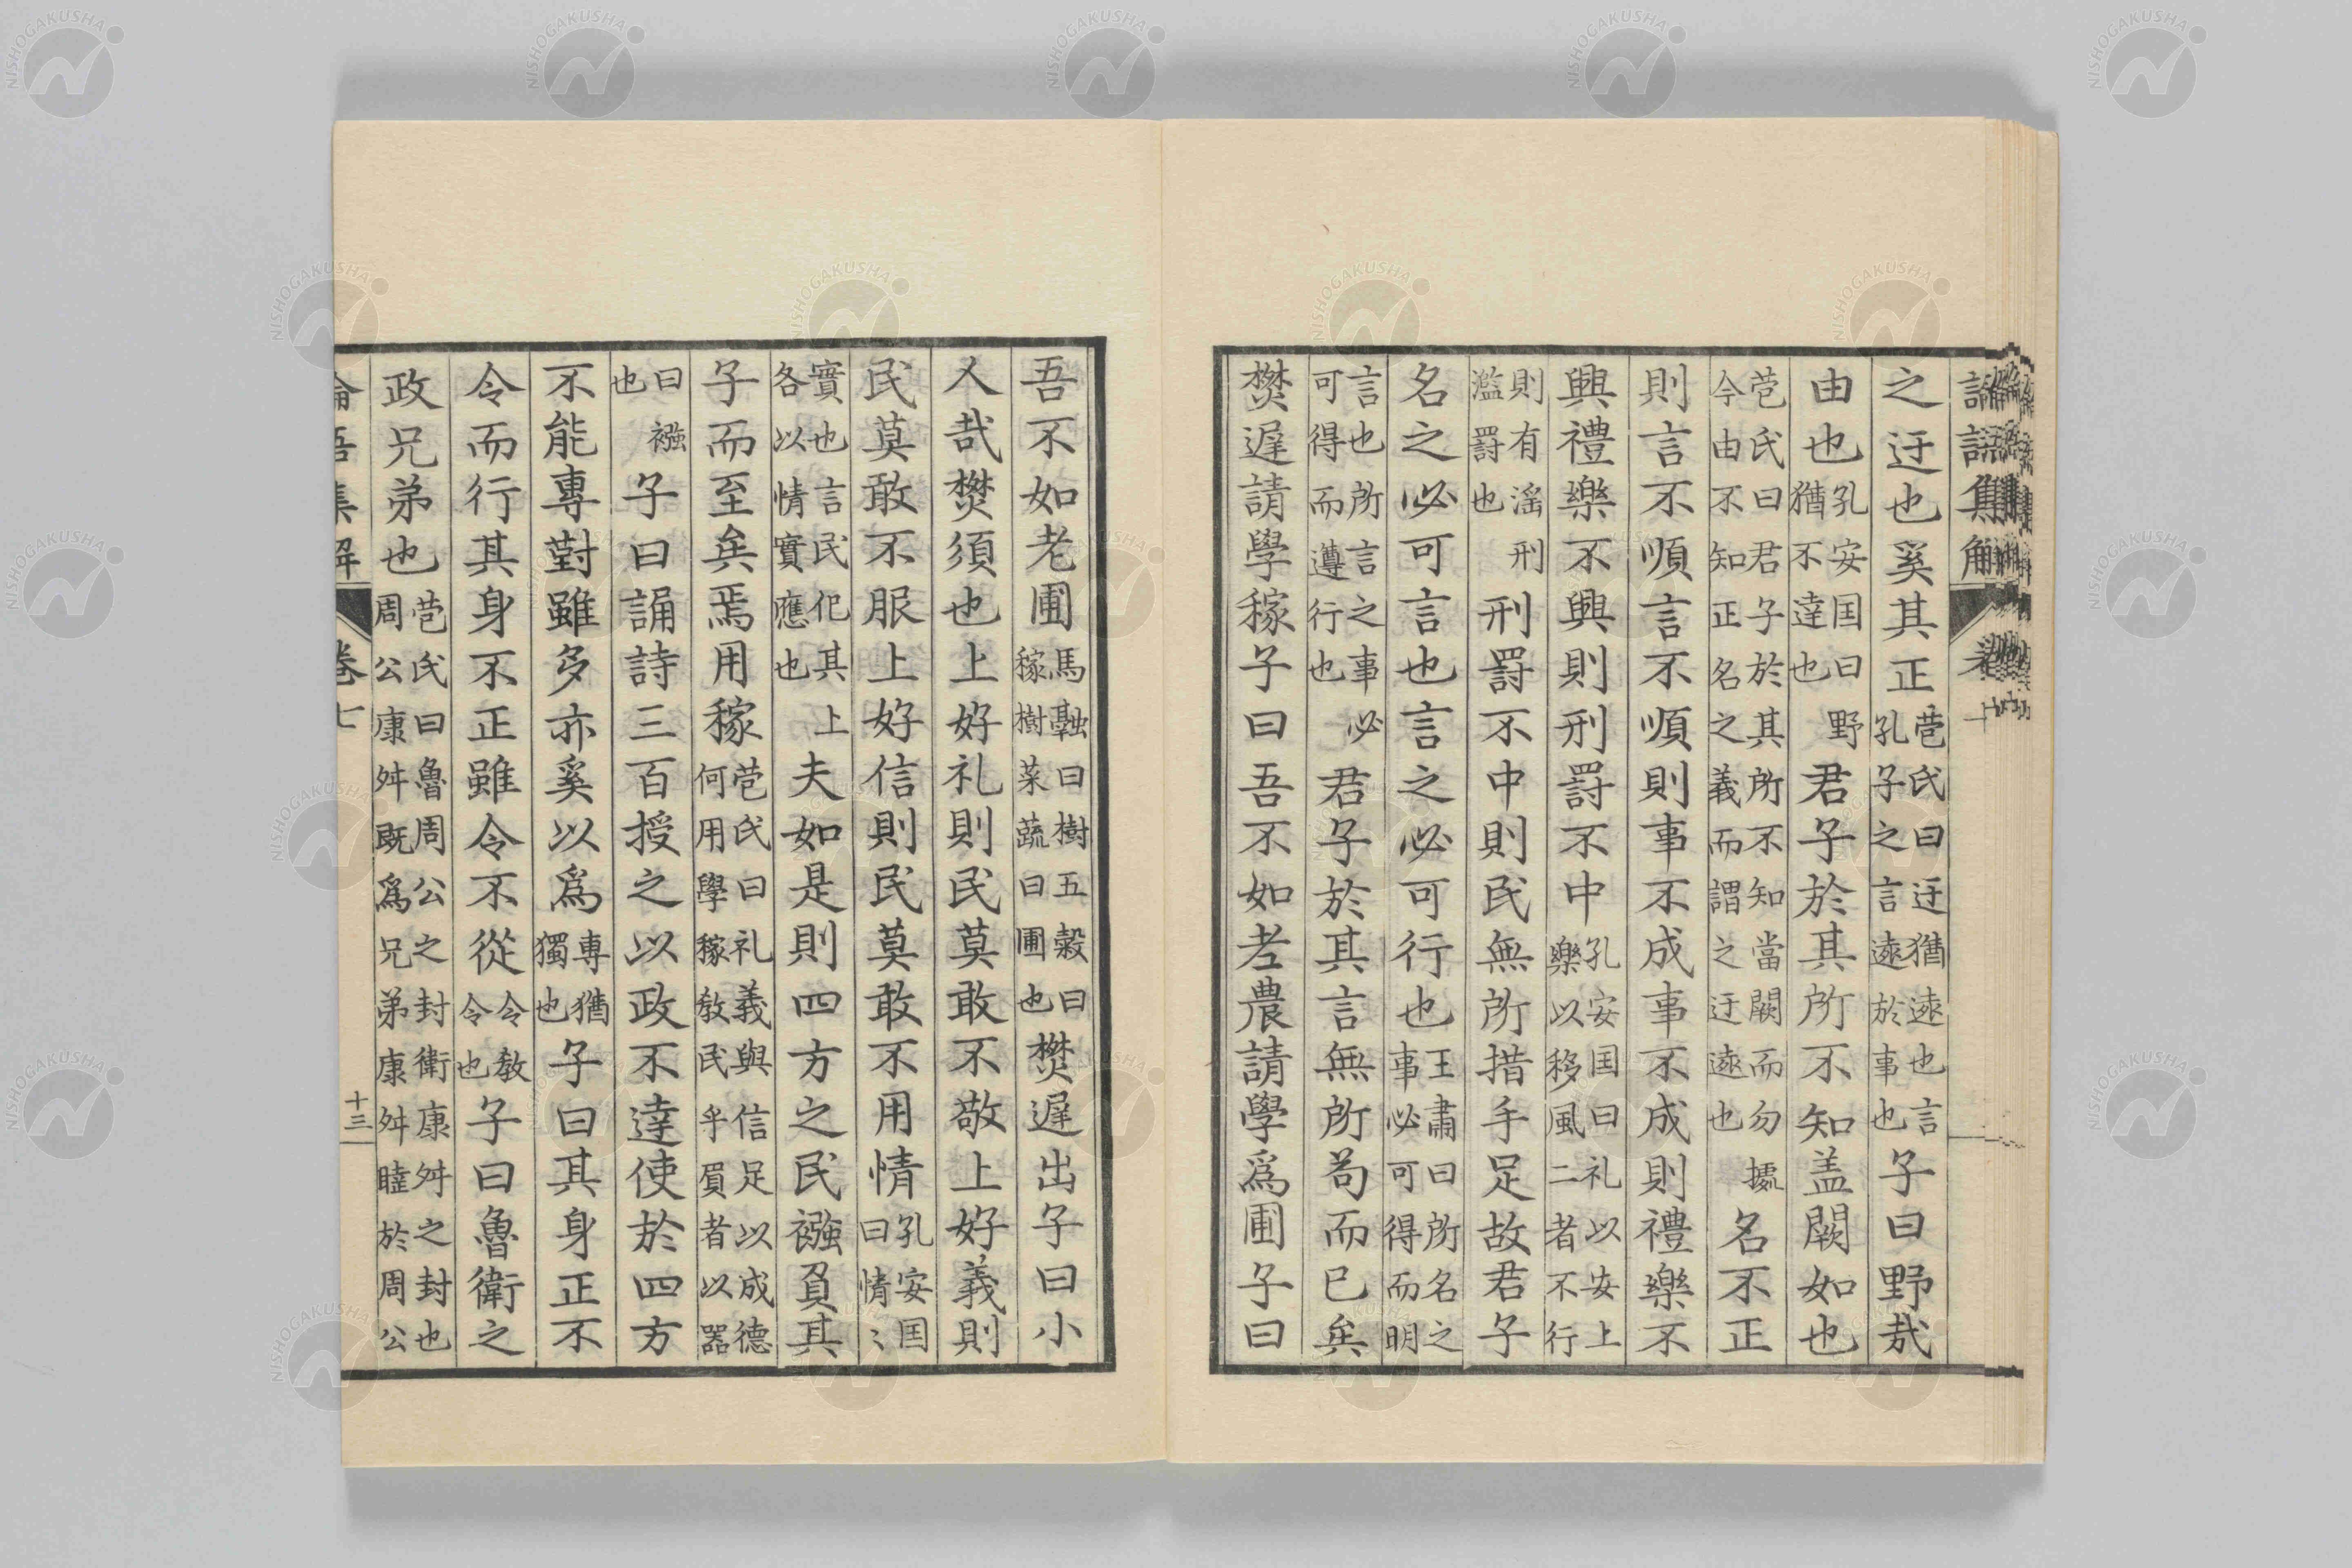 之迂也奚其正苞氏曰迂猶遠也言孔子之言遠於事也子曰野哉
由也孔安囯曰野猶不達也君子於其所不知盖闕如也
苞氏曰君子於其所不知當闕而勿據今由不知正名之義而謂之迂遠也名不正
則言不順言不順則事不成事不成則禮樂不
興禮樂不興則刑罸不中孔安囯曰礼以安上樂以移風二者不行
則有滛刑濫罸也刑罸不中則民無所措手足故君子
名之必可言也言之必可行也王肅曰所名之事必可得而明
言也所言之事必可得而遵行也君子於其言無所苟而已矣
樊遲請學稼子曰吾不如老農請學爲圃子曰
吾不如老圃馬融曰樹五穀曰稼樹菜蔬曰圃也樊遲出子曰小
人哉樊須也上好礼則民莫敢不敬上好義則
民莫敢不服上好信則民莫敢不用情孔安囯曰情〻
實也言民化其上各以情實應也夫如是則四方之民襁負其
子而至矣焉用稼苞氏曰礼義與信足以成德何用學稼教民乎負者以器
曰襁也子曰誦詩三百授之以政不達使於四方
不能專對雖多亦奚以爲專猶獨也子曰其身正不
令而行其身不正雖令不從令教令也子曰魯衛之
政兄弟也苞氏曰魯周公之封衛康舛之封也周公康舛既爲兄弟康舛睦於周公
論語集解 卷七 十三
NISHOGAKUSHA